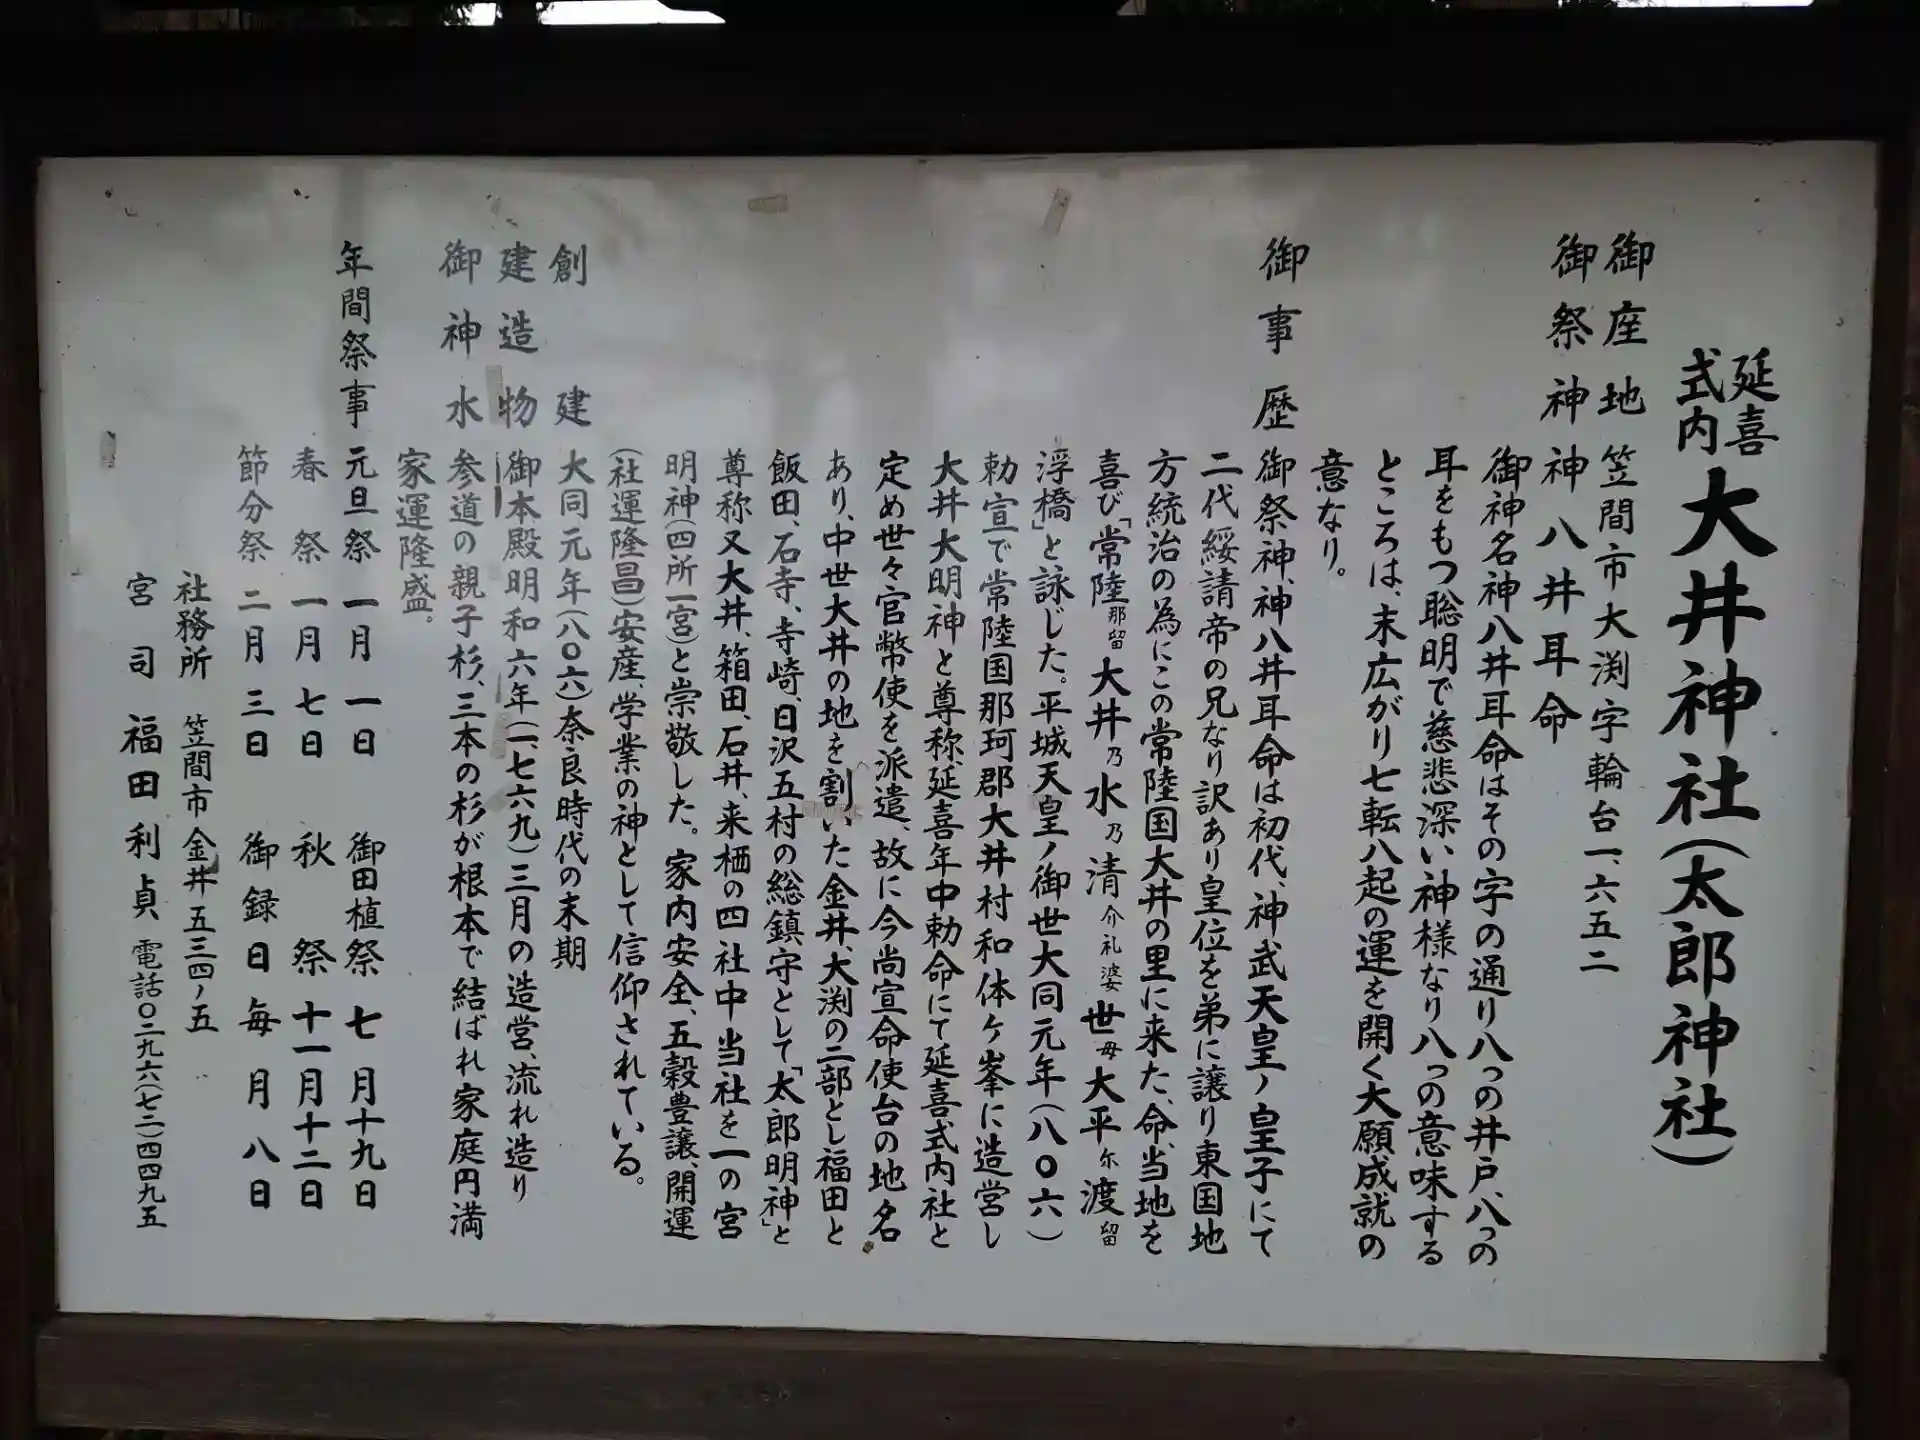 延喜式内 大井神社(太郎神社)
御座地 笠間市大渕字輪台一、六五二
御祭神 神八井耳命
御神名神八井耳命はその字の通り八っの井戸、八っの
耳をもつ聡明で慈悲深い神様なり八っの意味する
ところは、末広がり七転八起の運を開く大願成就の
意なり。
御事歴 御祭神、神八井耳命は初代、神武天皇ノ皇子にて
二代綏請帝の兄なり訳あり皇位を弟に譲り東国地
方統治の為にこの常陸国大井の里に来た、命、当地を
喜び「常陸那留大井乃水乃清介礼婆世毋大平尓渡留
浮橋」と詠じた。平城天皇ノ御世大同元年(八〇六)
勅宣で常陸国那珂郡大井村和体ヶ峯に造営し
大井大明神と尊称、延喜年中勅命にて延喜式内社と
定め世々官幣使を派遣、故に今尚宣命使台の地名
あり、中世大井の地を割いた金井、大渕の二部とし福田と
飯田、石寺、寺崎、日沢五村の総鎮守として「太郎明神」と
尊称又大井、箱田、石井、来栖の四社中当社を一の宮
明神(四所一宮)と崇敬した。家内安全、五穀豊譲、開運
(社運隆昌)安産、学業の神として信仰されている。
創建 大同元年(八〇六)奈良時代の末期
建造物 御本殿明和六年(一、七六九)三月の造営、流れ造り
御神水 参道の親子杉、三本の杉が根本で結ばれ家庭円満
家運隆盛。
年間祭事 元旦祭 一月一日 御田植祭 七月十九日
春祭 一月七日 秋祭 十一月十二日
節分祭 二月三日 御録日毎月八日
社務所 笠間市金井五三四ノ五
宮司 福田利貞 電話〇二九六(七二)四四九五